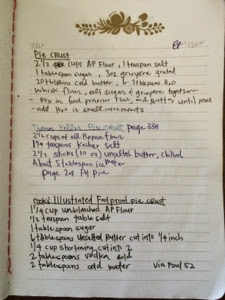 Pie Crust
2 1/2 cups AP Flour, 1 teaspoon salt
1 tablespoon sugar, 3oz gruyere grated
20 tablespoons cold butter, 6-7 tablespoons H2O
Whisk flour, salt, sugar & gruyere together
mix in food processor flour, and butter until
add H2O in small increments
Pie crust page 338
cups of all Purpose flour
teaspoon Kosher salt
2 1/2 sticks (10 oz) unsalted butter, chilled
About 5 tablespoon ice water
page 29
Cook's Illustrated Foolproof pie crust
1 1/4 cup unbleached AP Flour
1/2 teaspoon table salt
1 tablespoon sugar
6 tablespoons unsalted butter cut into 1/4 inch
1/4 cup shortening cut into 2
2 tablespoons vodka cold
2 tablespoons cold water via Food 52